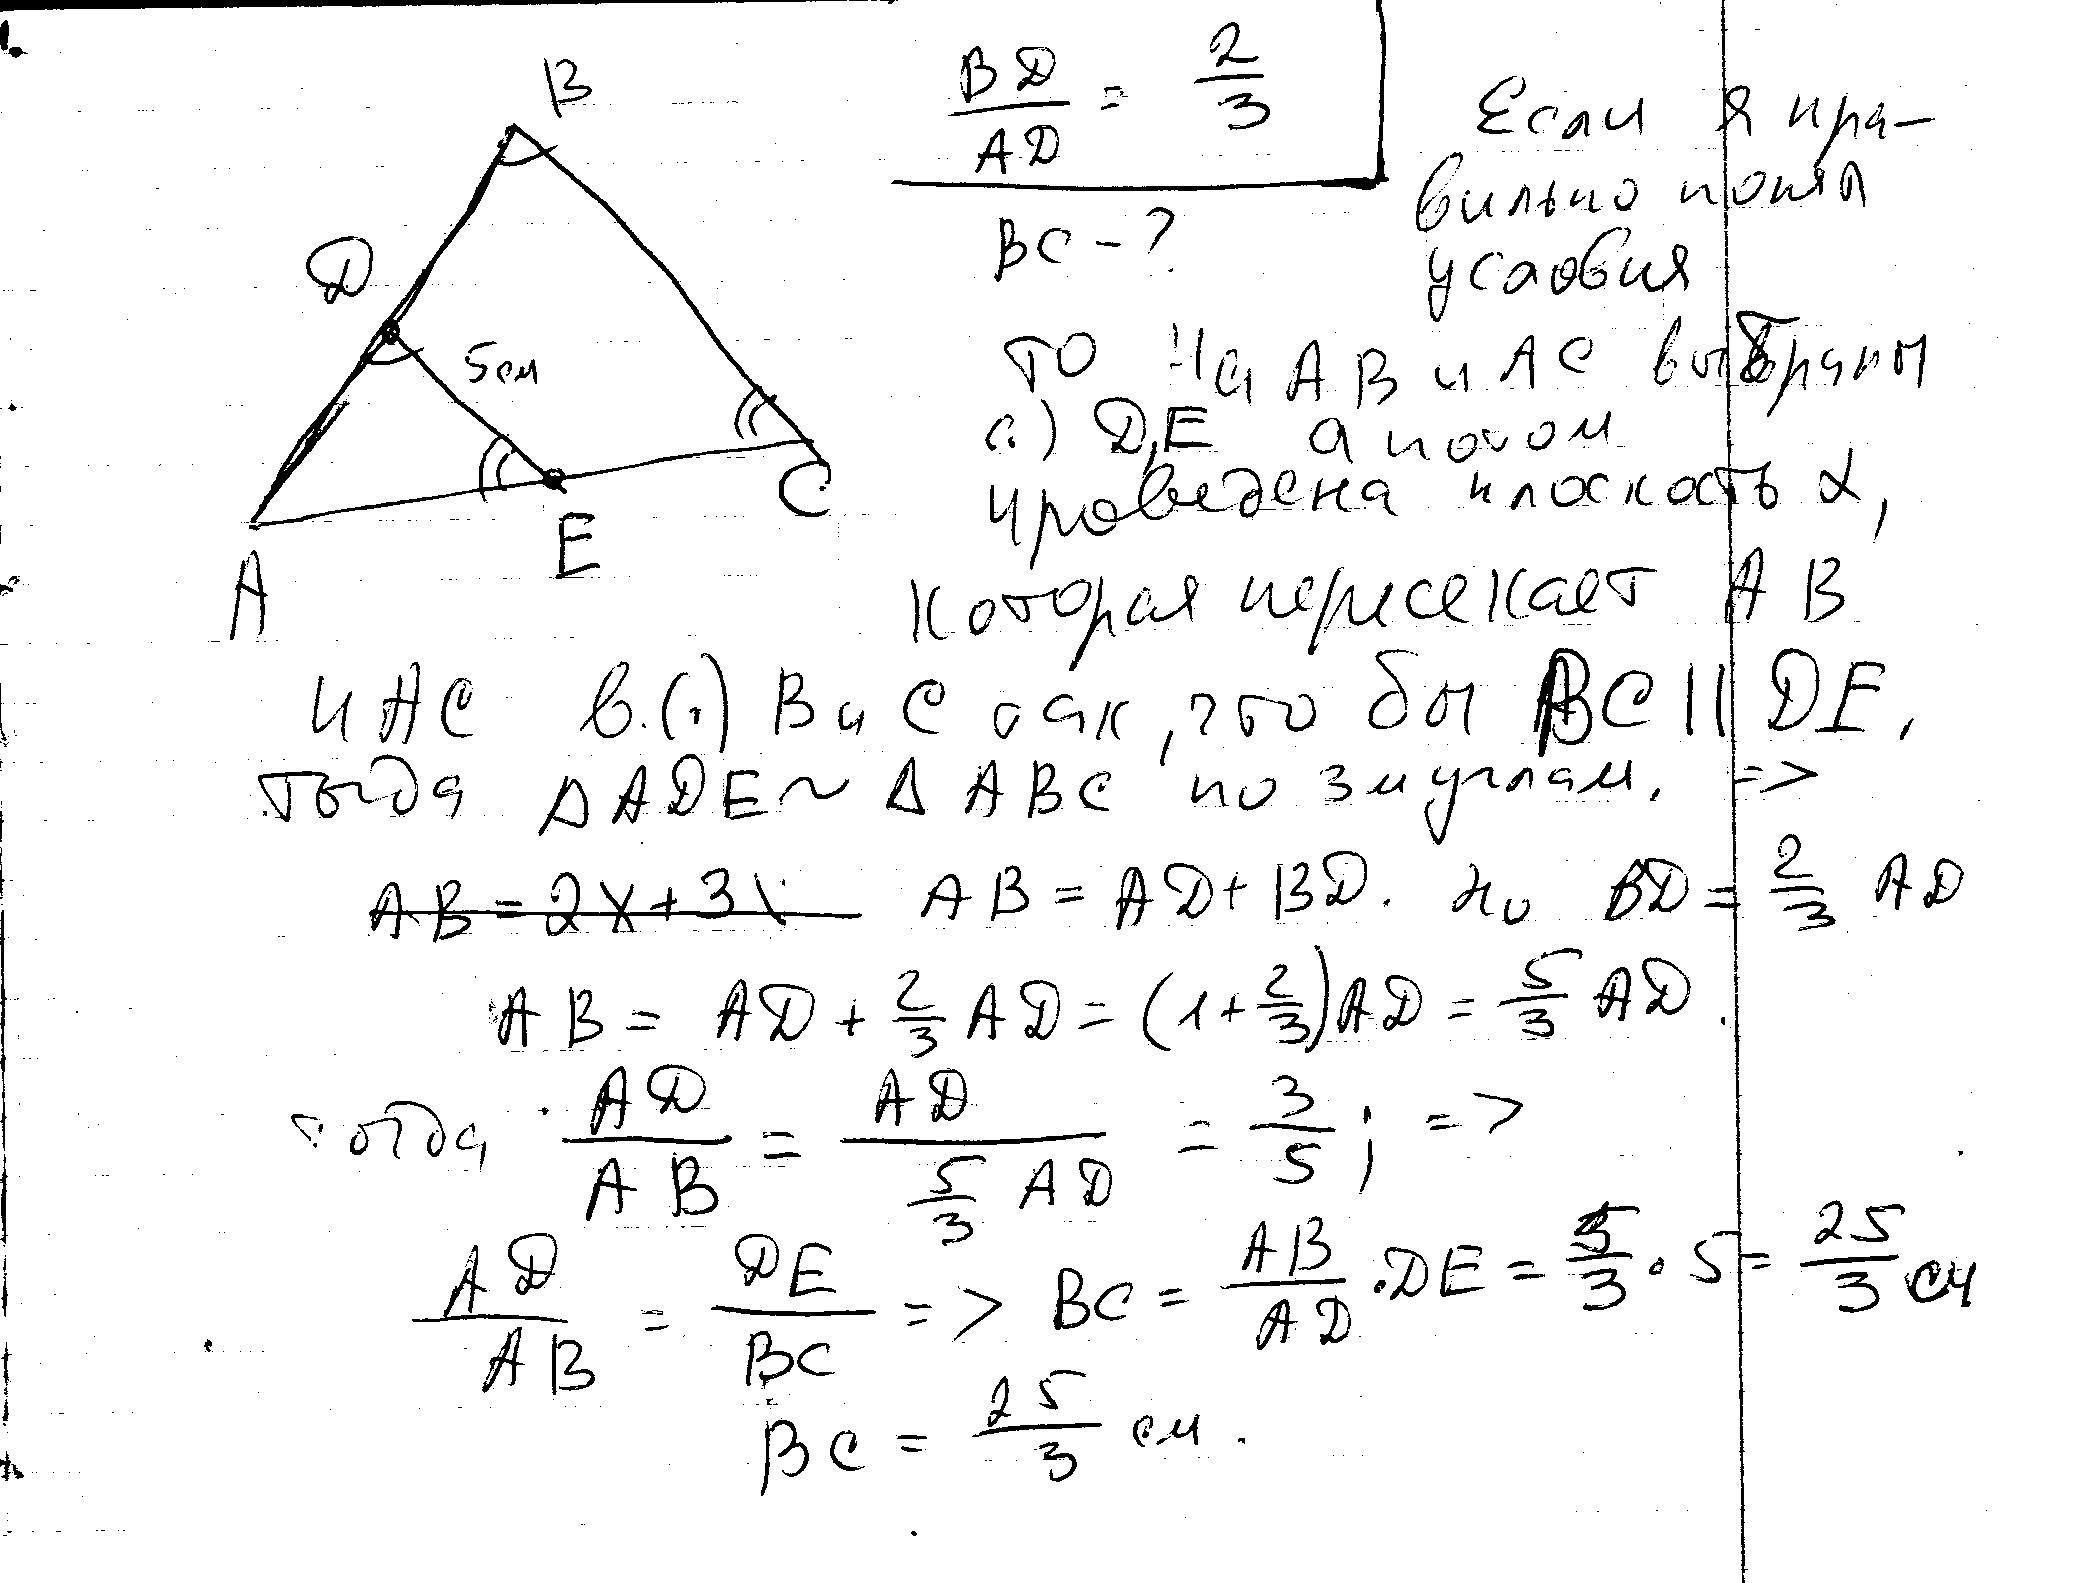 B
D
5см
A
E
C
BD/AD = 2/3
BC - ?
Если я пра-
вильно понял
условия
то на AB и AC выбраны
(.) D,E а потом
проведена плоскость α,
которая пересекает AB
и AC в (.) B и C так, что бы BC || DE,
тогда Δ ADE ~ Δ ABC по 3м углам. =>
AB = 2x + 3x AB = AD + BD. но BD = 2/3 AD
AB = AD + 2/3 AD = (1 + 2/3) AD = 5/3 AD.
тогда AD/AB = AD/(5/3 AD) = 3/5; =>
AD/AB = DE/BC => BC = AB/AD · DE = 5/3 · 5 = 25/3 см
BC = 25/3 см.